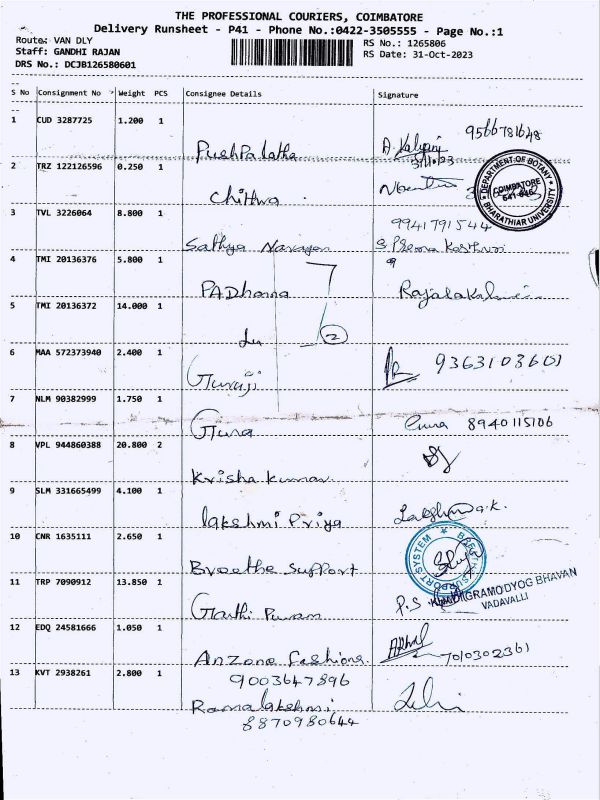 THE PROFESSIONAL COURIERS, COIMBATORE
Delivery Runsheet - P41 - Phone No.:0422-3505555 - Page No.:1
Route: VAN DLY
Staff: GANDHI RAJAN
DRS No.: DCJB126580601
RS No.: 1265806
RS Date: 31-Oct-2023
S No Consignment No Weight PCS Consignee Details Signature
1 CUD 3287725 1.200 1 Pushpa latha A. Kalyani 9566781648
31/10/23
2 TRZ 122126596 0.250 1 Chithra
DEPARTMENT OF BOTANY
COIMBATORE
641 046
BHARATHIAR UNIVERSITY
3 TVL 3226064 8.800 1 Sathya Narayan 9941791544
4 TMI 20136376 5.800 1 PADhama
5 TMI 20136372 14.000 1
2
6 MAA 572373940 2.400 1 Guruji 9363103601
7 NLM 90382999 1.750 1 Guna 8940115106
8 VPL 944860388 20.800 2 Krisha kumar
9 SLM 331665499 4.100 1 lakshmi Priya
10 CNR 1635111 2.650 1 Breathe Support
SUPPORT SYSTEM
11 TRP 7090912 13.850 1 P.S.
GRAMODYOG BHAVAN
VADAVALLI
12 EDQ 24581666 1.050 1 Anzone fashions 7010302361
9003647896
13 KVT 2938261 2.800 1 Ramalakshmi
8870980644